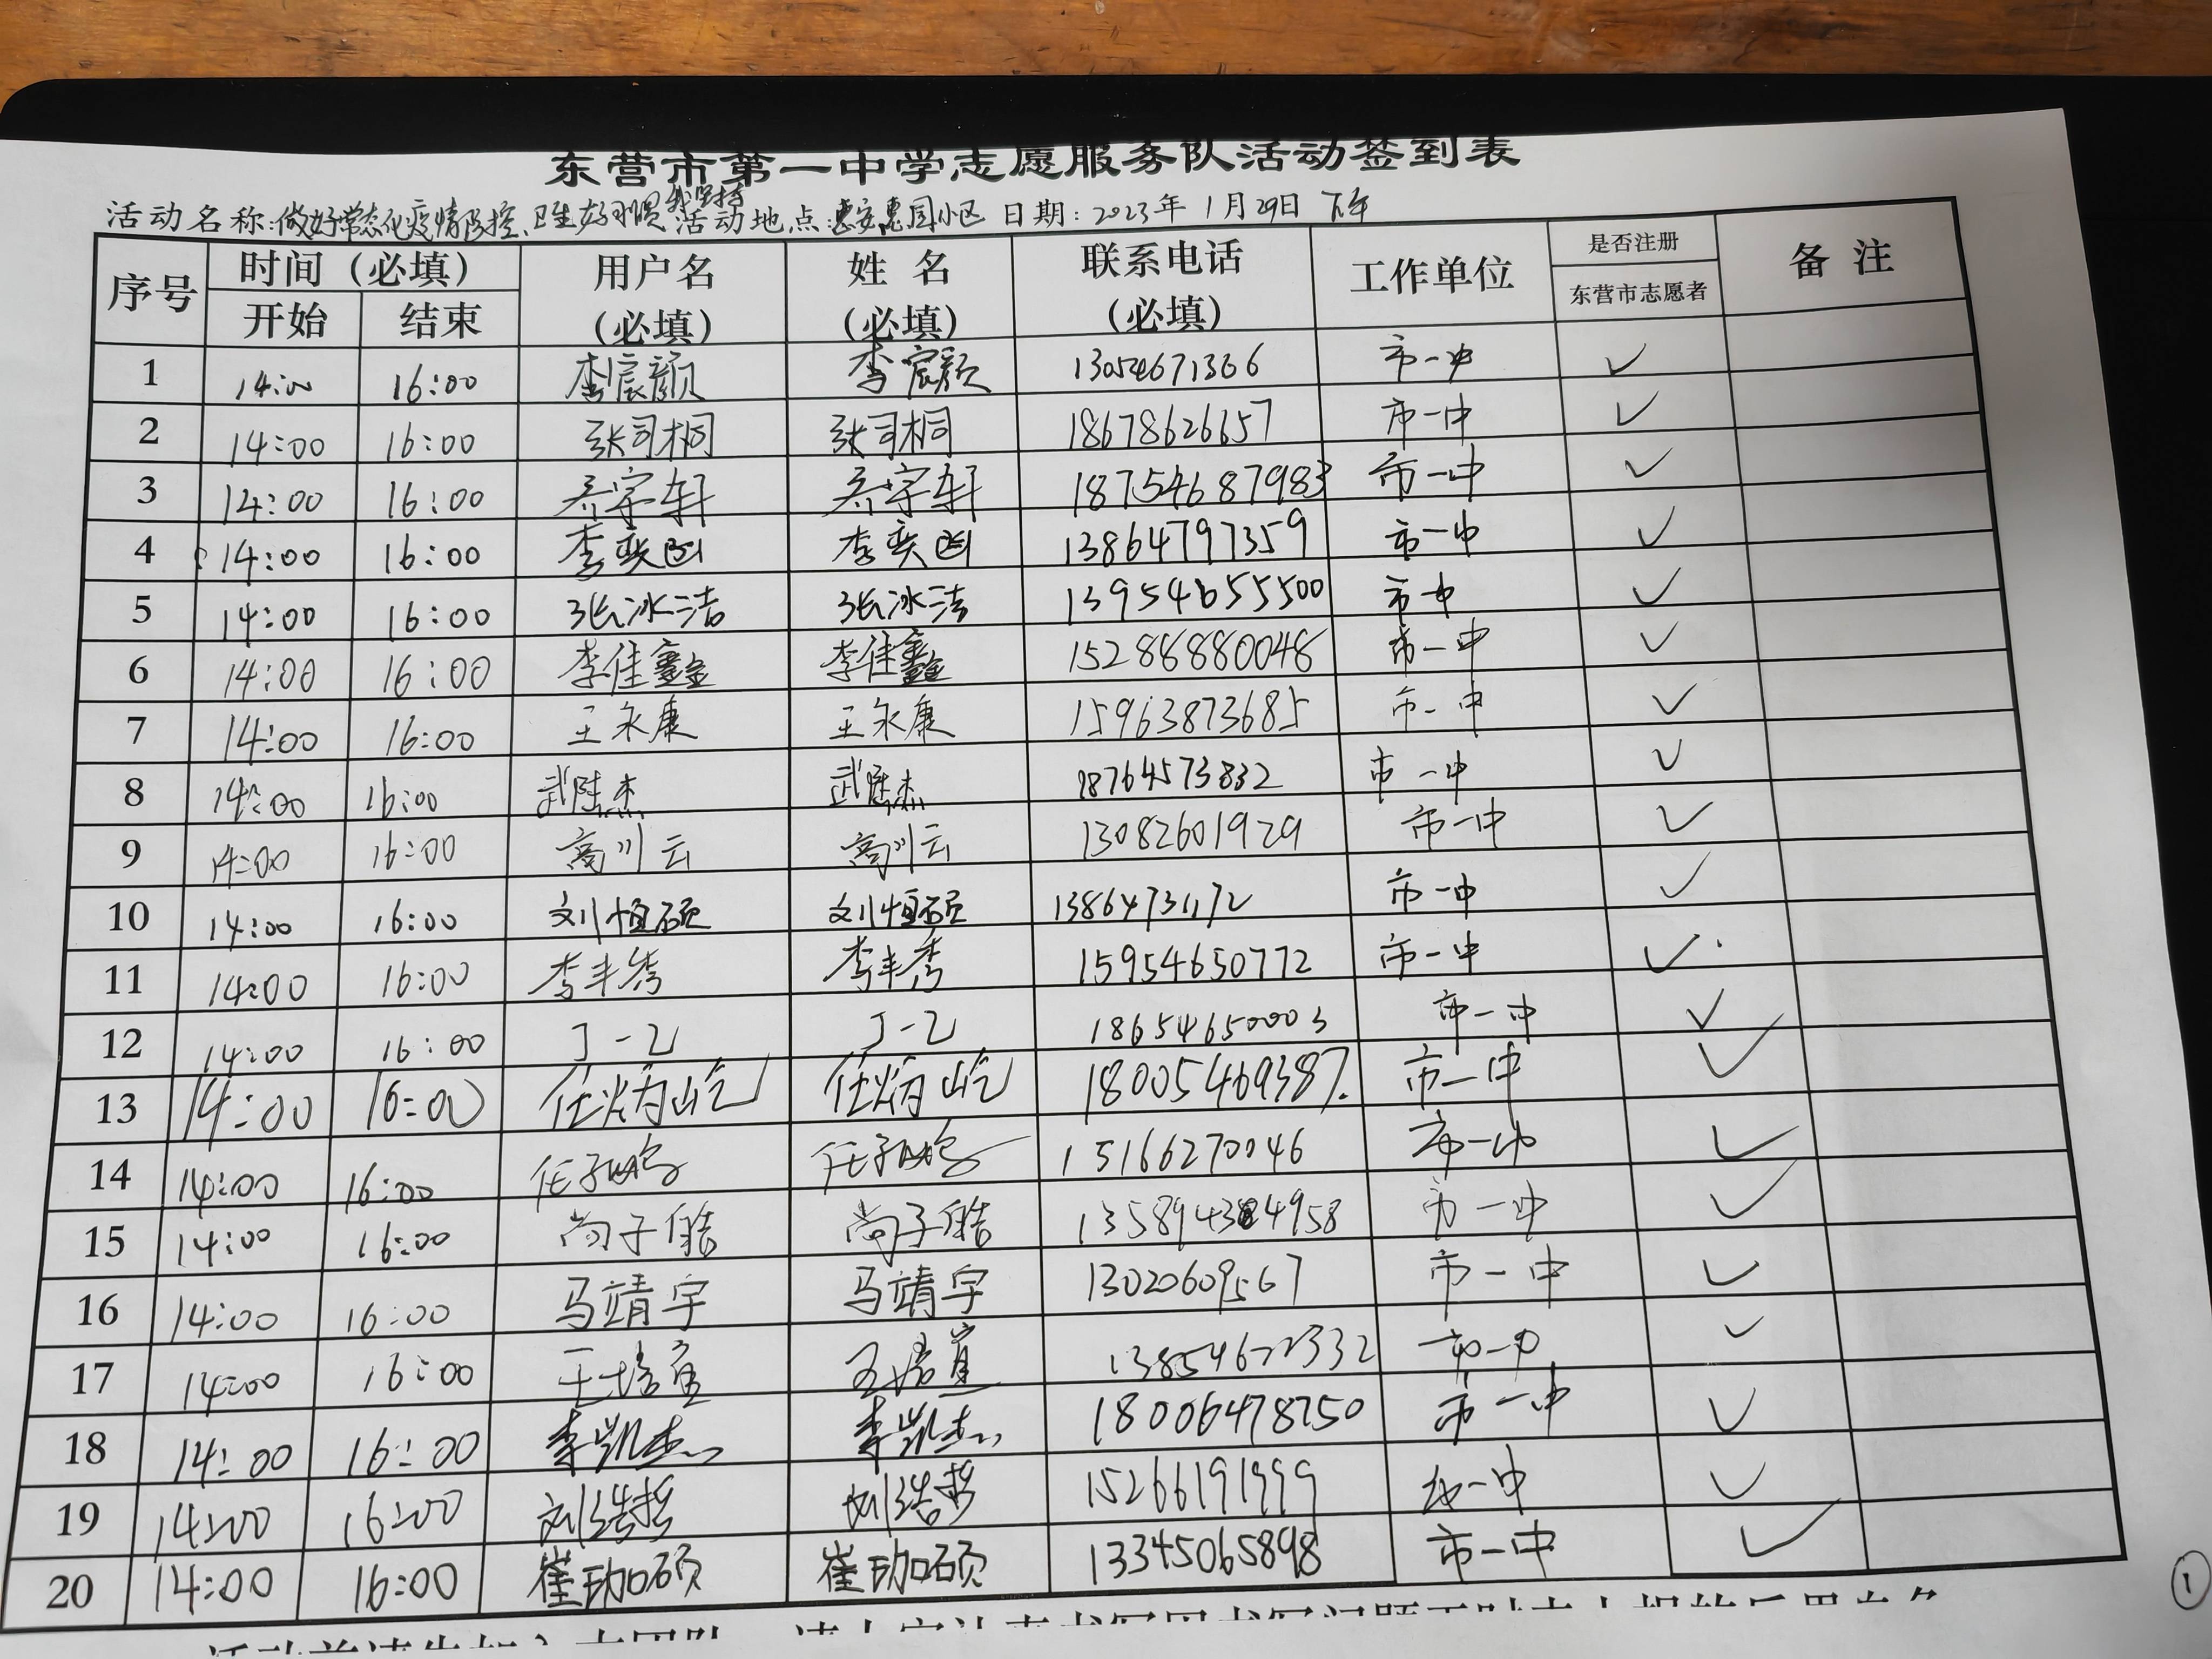 东营市第一中学志愿服务队活动签到表
活动名称:做好常态化疫情防控、卫生好习惯我坚持 活动地点:惠安惠园小区 日期:2023年1月29日 下午
序号 时间(必填) 用户名(必填) 姓名(必填) 联系电话(必填) 工作单位 是否注册东营市志愿者 备注
开始 结束
1 14:00 16:00 李宸颜 李宸颜 13054671366 市一中 ✓
2 14:00 16:00 张司桐 张司桐 18678626657 市一中 ✓
3 14:00 16:00 乔宇轩 乔宇轩 18754687983 市一中 ✓
4 14:00 16:00 李奕凶 李奕凶 13864797359 市一中 ✓
5 14:00 16:00 张冰洁 张冰洁 13954655500 市一中 ✓
6 14:00 16:00 李佳鑫 李佳鑫 15288880048 市一中 ✓
7 14:00 16:00 王永康 王永康 15963873685 市一中 ✓
8 14:00 16:00 武陆杰 武陆杰 18764573832 市一中 ✓
9 14:00 16:00 高川云 高川云 13082601929 市一中 ✓
10 14:00 16:00 刘恒硕 刘恒硕 13864731172 市一中 ✓
11 14:00 16:00 李丰秀 李丰秀 15954650772 市一中 ✓
12 14:00 16:00 丁一乙 丁一乙 18654650003 市一中 ✓
13 14:00 16:00 任炳屹 任炳屹 18005469387. 市一中 ✓
14 14:00 16:00 任子 任子 15166270046 市一中 ✓
15 14:00 16:00 尚子皓 尚子皓 市一中 ✓
16 14:00 16:00 马靖宇 马靖宇 13020609567 市一中 ✓
17 14:00 16:00 王培宣 王培宣 13854622332 市一中 ✓
18 14:00 16:00 李凯杰 李凯杰 18006478250 市一中 ✓
19 14:00 16:00 刘浩哲 刘浩哲 15266191999 市一中 ✓
20 14:00 16:00 崔珈硕 崔珈硕 13345065898 市一中 ✓
1